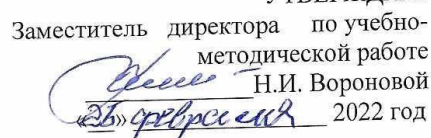 Заместитель директора по учебно-
методической работе
Н.И. Вороновой
«26» февраля 2022 год